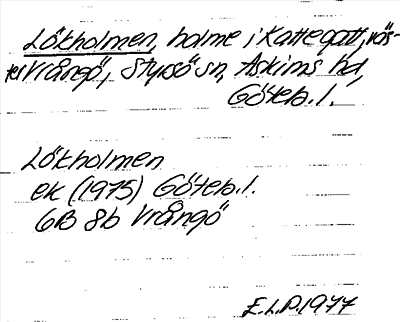 Lökholmen, holme i Kattegatt, väs-
ter Vrångö, Styrsö sn, Askims hd,
Göteb. l.
Lökholmen
ek (1975) Göteb. l.
6B 8b Vrångö
E.L.P. 1977